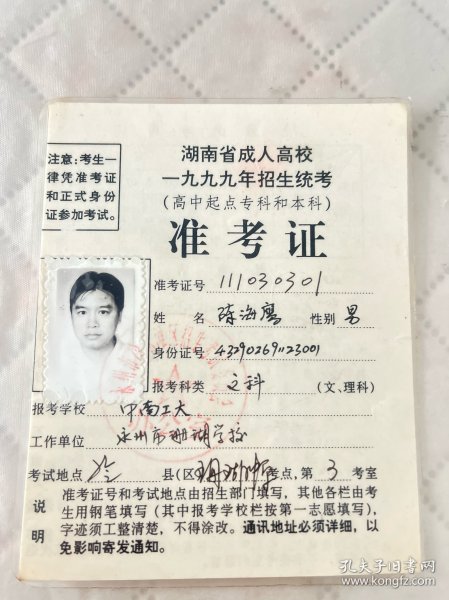 湖南省成人高校
一九九九年招生统考
(高中起点专科和本科)
准考证
注意:考生一
律凭准考证
和正式身份
证参加考试。
准考证号 111030301
姓名 陈海鹰 性别 男
身份证号
报考科类 文科 (文、理科)
报考学校 中南工大
工作单位 永州市珊瑚学校
考试地点 冷 县(区 考点,第 3 考室
说明
准考证号和考试地点由招生部门填写,其他各栏由考
生用钢笔填写(其中报考学校栏按第一志愿填写),
字迹须工整清楚,不得涂改。通讯地址必须详细,以
免影响寄发通知。
孔夫子旧书网
www.kongfz.com